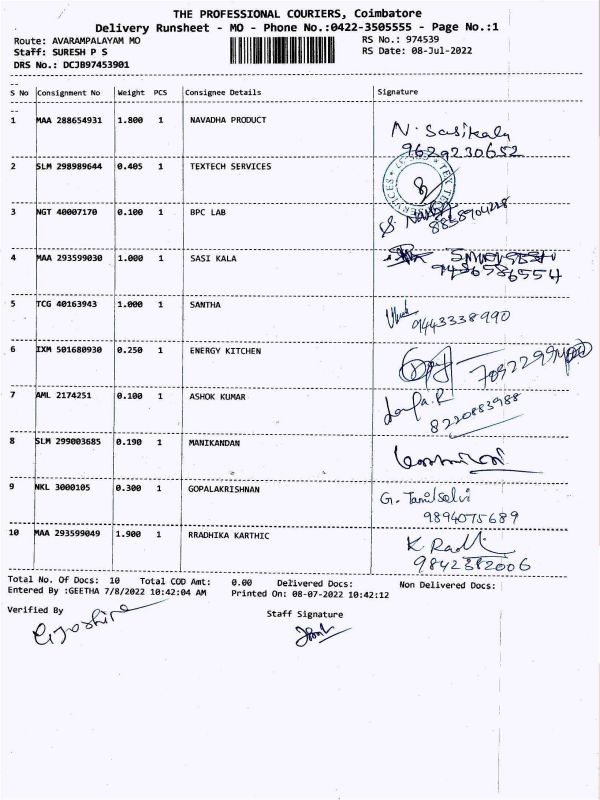 THE PROFESSIONAL COURIERS, Coimbatore
Delivery Runsheet - MO - Phone No.:0422-3505555 - Page No.:1
Route: AVARAMPALAYAM MO RS No.: 974539
Staff: SURESH P S RS Date: 08-Jul-2022
DRS No.: DCJB97453901
S No Consignment No Weight PCS Consignee Details Signature
1 MAA 288654931 1.800 1 NAVADHA PRODUCT N. Sasikala
9629230652
2 SLM 298989644 0.405 1 TEXTECH SERVICES
3 NGT 40007170 0.100 1 BPC LAB
4 MAA 293599030 1.000 1 SASI KALA
9486586554
5 TCG 40163943 1.000 1 SANTHA
9443338990
6 IXM 501680930 0.250 1 ENERGY KITCHEN
7 AML 2174251 0.100 1 ASHOK KUMAR
8220883988
8 SLM 299003685 0.190 1 MANIKANDAN
9 NKL 3000105 0.300 1 GOPALAKRISHNAN G. Tamilselvi
9894075689
10 MAA 293599049 1.900 1 RRADHIKA KARTHIC K Radh
9842382006
Total No. Of Docs: 10 Total COD Amt: 0.00 Delivered Docs: Non Delivered Docs:
Entered By :GEETHA 7/8/2022 10:42:04 AM Printed On: 08-07-2022 10:42:12
Verified By Staff Signature